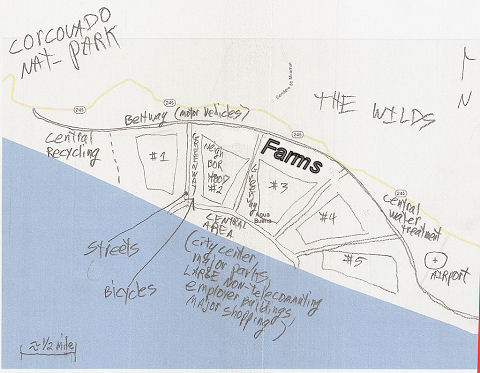 CORCOVADO
NAT- PARK
N
Sendero de Miramar
THE WILDS
245
245
Beltway (motor vehicles)
245
Central
Recycling
GREENWAY
Farms
#1
Neigh
BOR
HOOD
#2
GREENWAY
#3
245
Central
water
treatment
#4
CENTRAL
AREA
Agua
Buena
(city center,
major parks,
LARGE non-telecommuting
employer buildings
major shopping)
#5
AIRPORT
Streets
Bicycles
≈ 1/2 mile